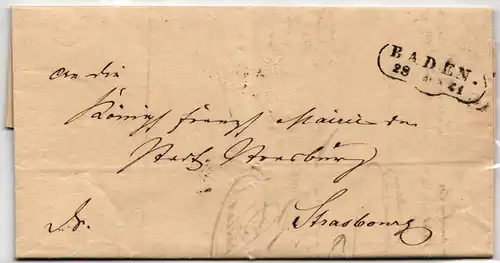 BADEN.
28 41
an die
Königl franz Mairie der
Stadt Strasburg
Strasbourg